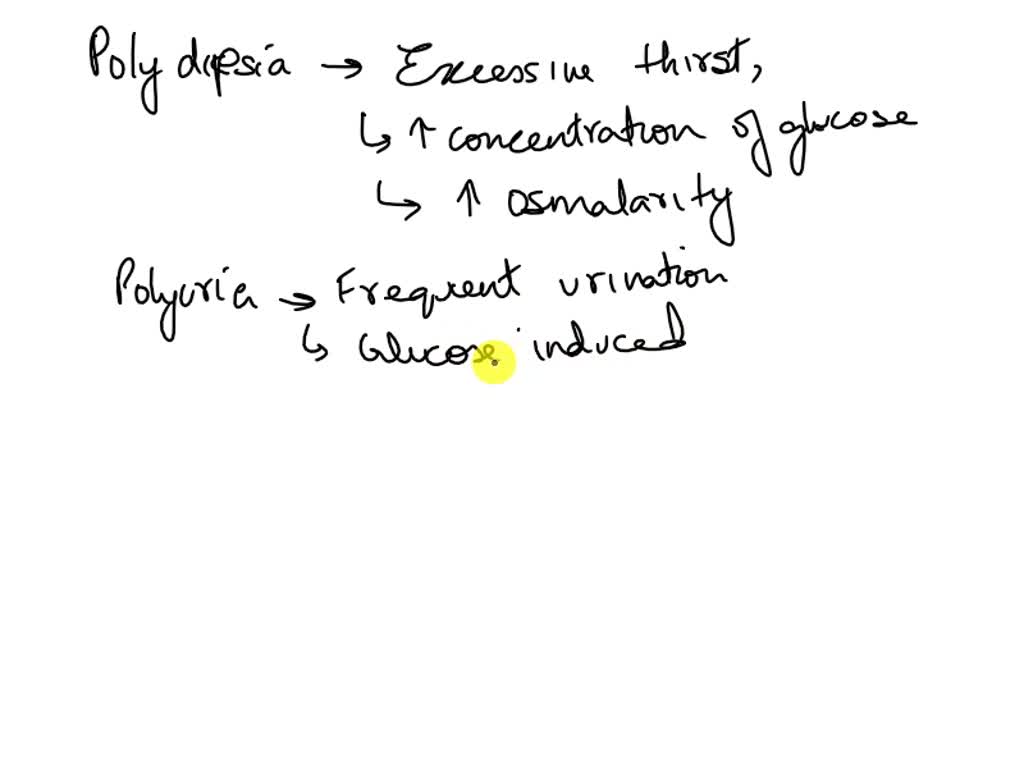 Polydipsia → Excessive thirst,
↳ ↑ concentration of glucose
↳ ↑ osmalarity
Polyuria → Frequent urination
↳ Glucose induced